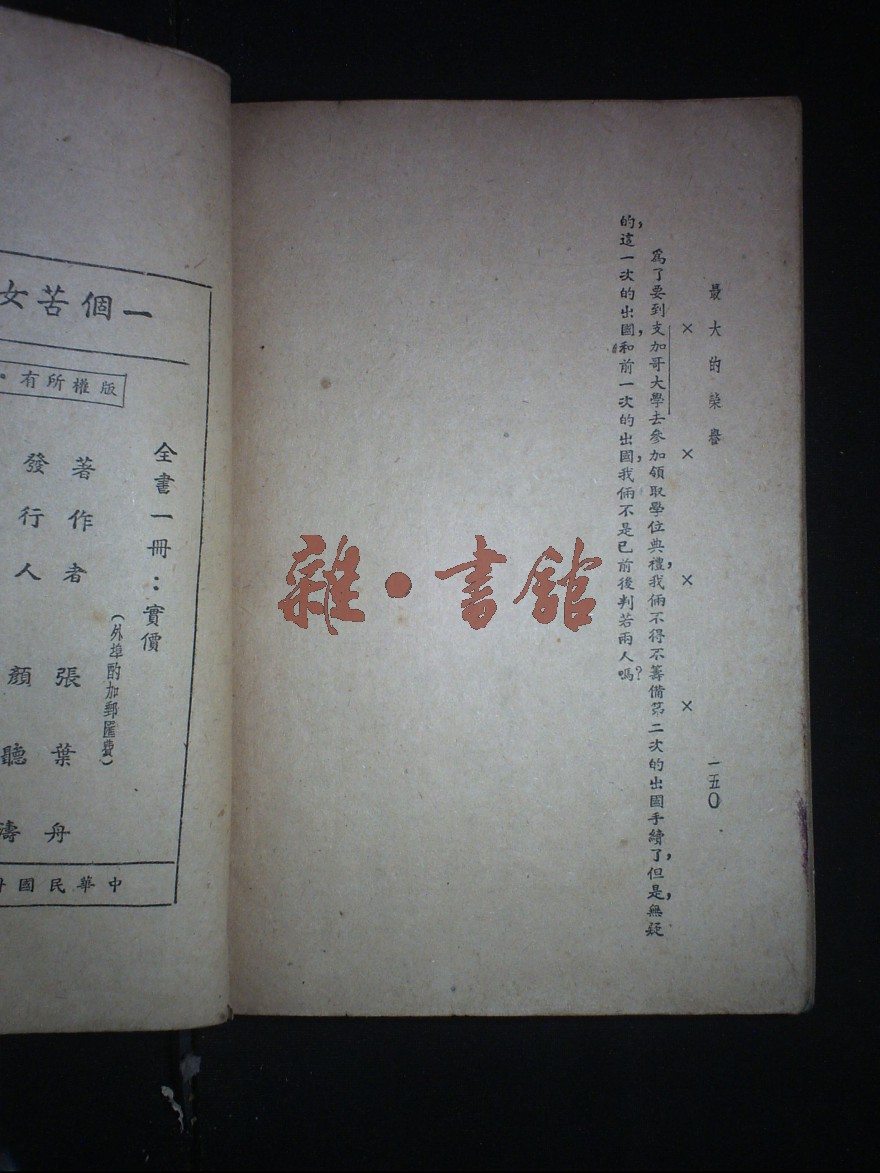 最大的榮譽 一五〇
× × × ×
爲了要到支加哥大學去參加領取學位典禮，我倆不得不籌備第二次的出國手續了，但是，無疑
的，這一次的出國，和前一次的出國，我倆不是已前後判若兩人嗎？
雜•書館
一個苦女
版權所有•
全書一冊：實價
（外埠酌加郵匯費）
著作者 張葉舟
發行人 顏聽
中華民國